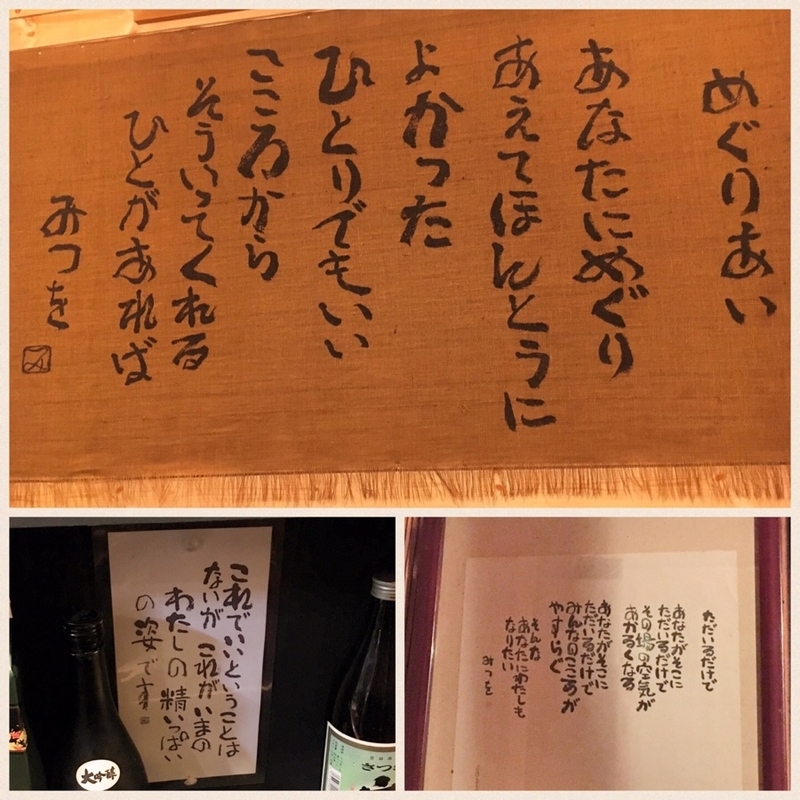 めぐりあい
あなたにめぐり
あえてほんとうに
よかった
ひとりでもいい
こころから
そういってくれる
ひとがあれば
みつを
これでいいということは
ないが これがいまの
わたしの精いっぱい
の姿です
大吟醸
さつま
ただいるだけで
あなたがそこに
ただいるだけで
その場の空気が
あかるくなる
あなたがそこに
ただいるだけで
みんなのこころが
やすらぐ
そんな
あなたにわたしも
なりたい
みつを